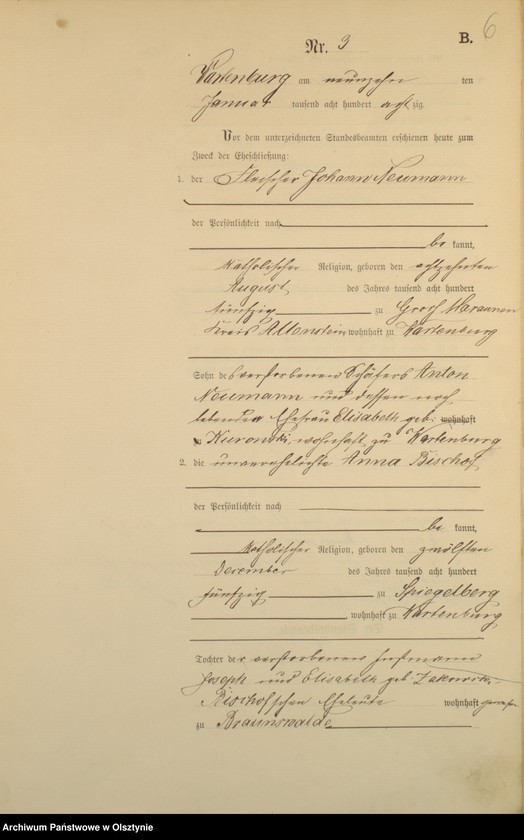 B. 6
Nr. 3
Wartenburg am neunzehn ten
Januar tausend acht hundert achtzig.
Vor dem unterzeichneten Standesbeamten erschienen heute zum
Zweck der Eheschließung:
1. der Fleischer Johann Neumann
der Persönlichkeit nach
be kannt,
katholischer Religion, geboren den achtzehnten
August des Jahres tausend acht hundert
fünfzig zu Groß Maraunen
Kreis Allenstein, wohnhaft zu Wartenburg
Sohn des verstorbenen Schäfers Anton
Neumann und dessen noch
lebenden Ehefrau Elisabeth geb. wohnhaft
zu Kurowski, wohnhaft zu Wartenburg
2. die unverehelichte Anna Bischof
der Persönlichkeit nach
be kannt,
katholischer Religion, geboren den zwölften
Dezember des Jahres tausend acht hundert
fünfzig zu Spiegelberg
wohnhaft zu Wartenburg
Tochter der verstorbenen
Joseph und Elisabeth geb.
Bischof'schen Eheleute wohnhaft gewesen
zu Braunswalde
Archiwum Państwowe w Olsztynie